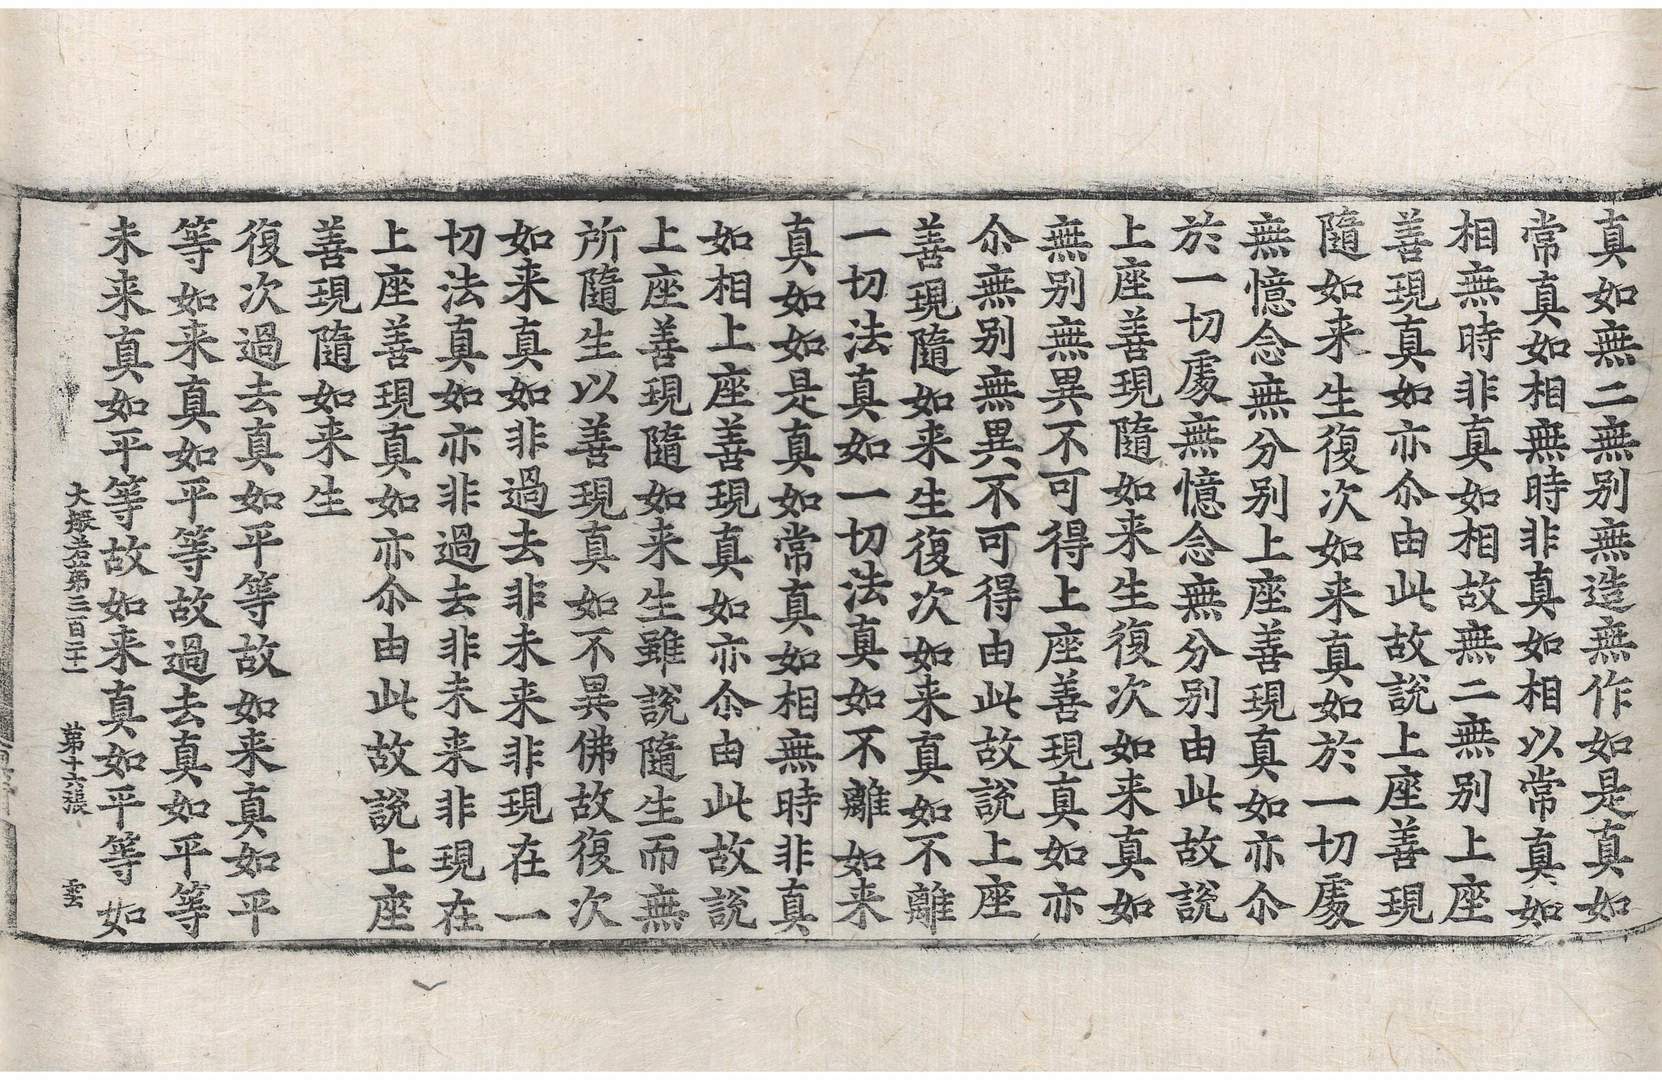 真如無二無别無造無作如是真如
常真如相無時非真如相以常真如
相無時非真如相故無二無别上座
善現真如亦尒由此故說上座善現
隨如来生復次如来真如於一切處
無憶念無分别上座善現真如亦尒
於一切處無憶念無分别由此故說
上座善現隨如来生復次如来真如
無别無異不可得上座善現真如亦
尒無别無異不可得由此故說上座
善現隨如来生復次如来真如不離
一切法真如一切法真如不離如来
真如如是真如常真如相無時非真
如相上座善現真如亦尒由此故說
上座善現隨如来生雖說隨生而無
所隨生以善現真如不異佛故復次
如来真如非過去非未来非現在一
切法真如亦非過去非未来非現在
上座善現真如亦尒由此故說上座
善現隨如来生
復次過去真如平等故如来真如平
等如来真如平等故過去真如平等
未来真如平等故如来真如平等如
大般若第三百二十一 第十六張 雲